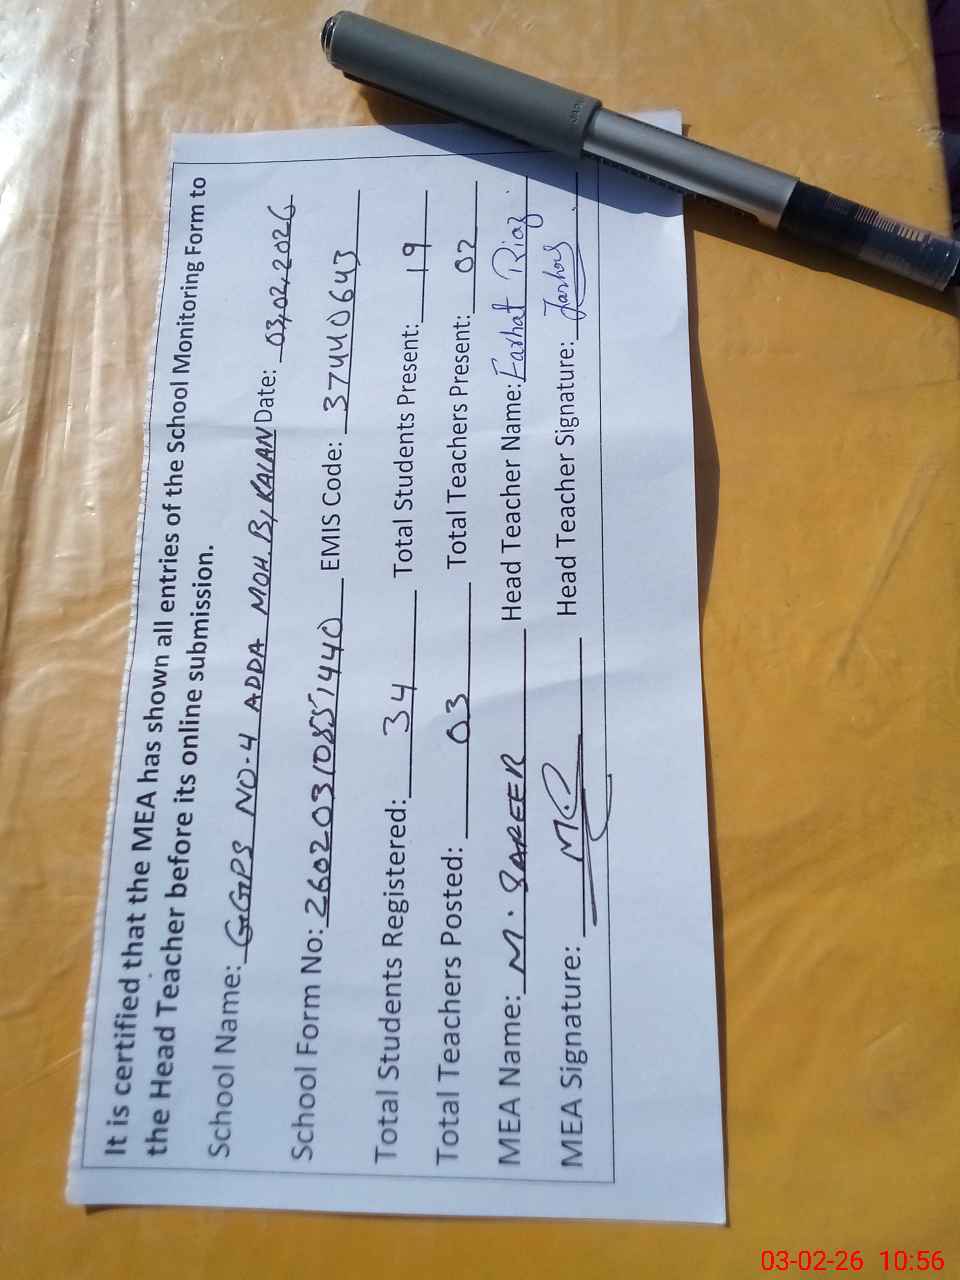 It is certified that the MEA has shown all entries of the School Monitoring Form to
the Head Teacher before its online submission.
School Name: GGPS NO-4 ADDA MOH. B, KALAN Date: 03,02,2026
School Form No: 260203108551440 EMIS Code: 37440643
Total Students Registered: 34 Total Students Present: 19
Total Teachers Posted: 03 Total Teachers Present: 02
MEA Name: M. Head Teacher Name: Farhat Riaz
MEA Signature: Head Teacher Signature: Farhat
03-02-26 10:56